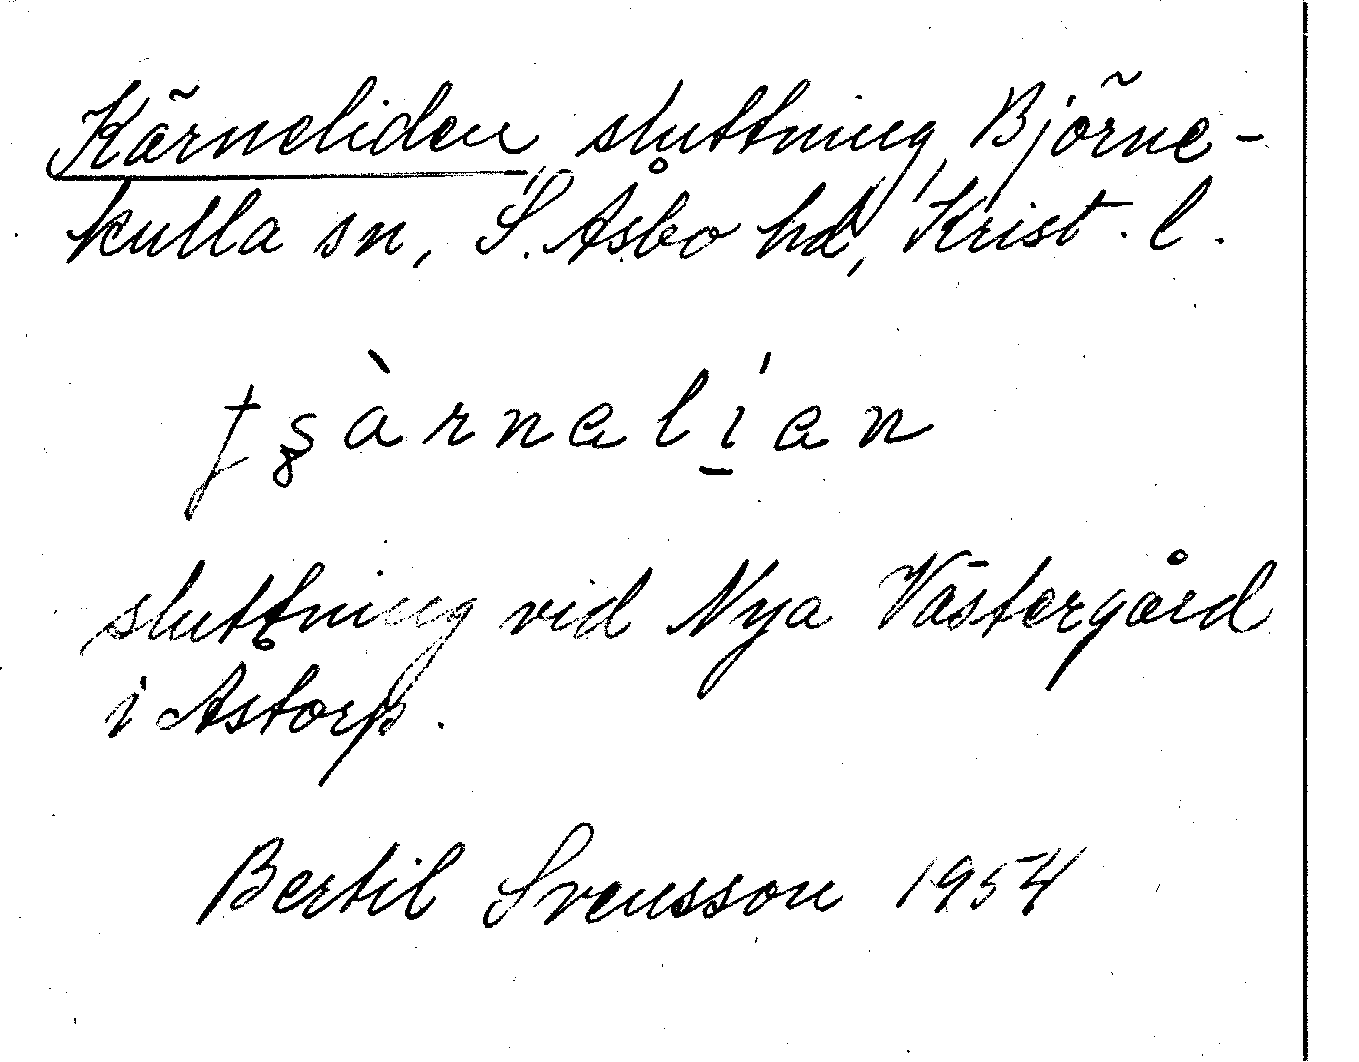 Kärneliden, sluttning, Björne-
kulla sn, S. Åsbo hd, Krist. l.
tʂàrnalían
sluttning vid Nya Västergård
i Åstorp.
Bertil Svensson 1954